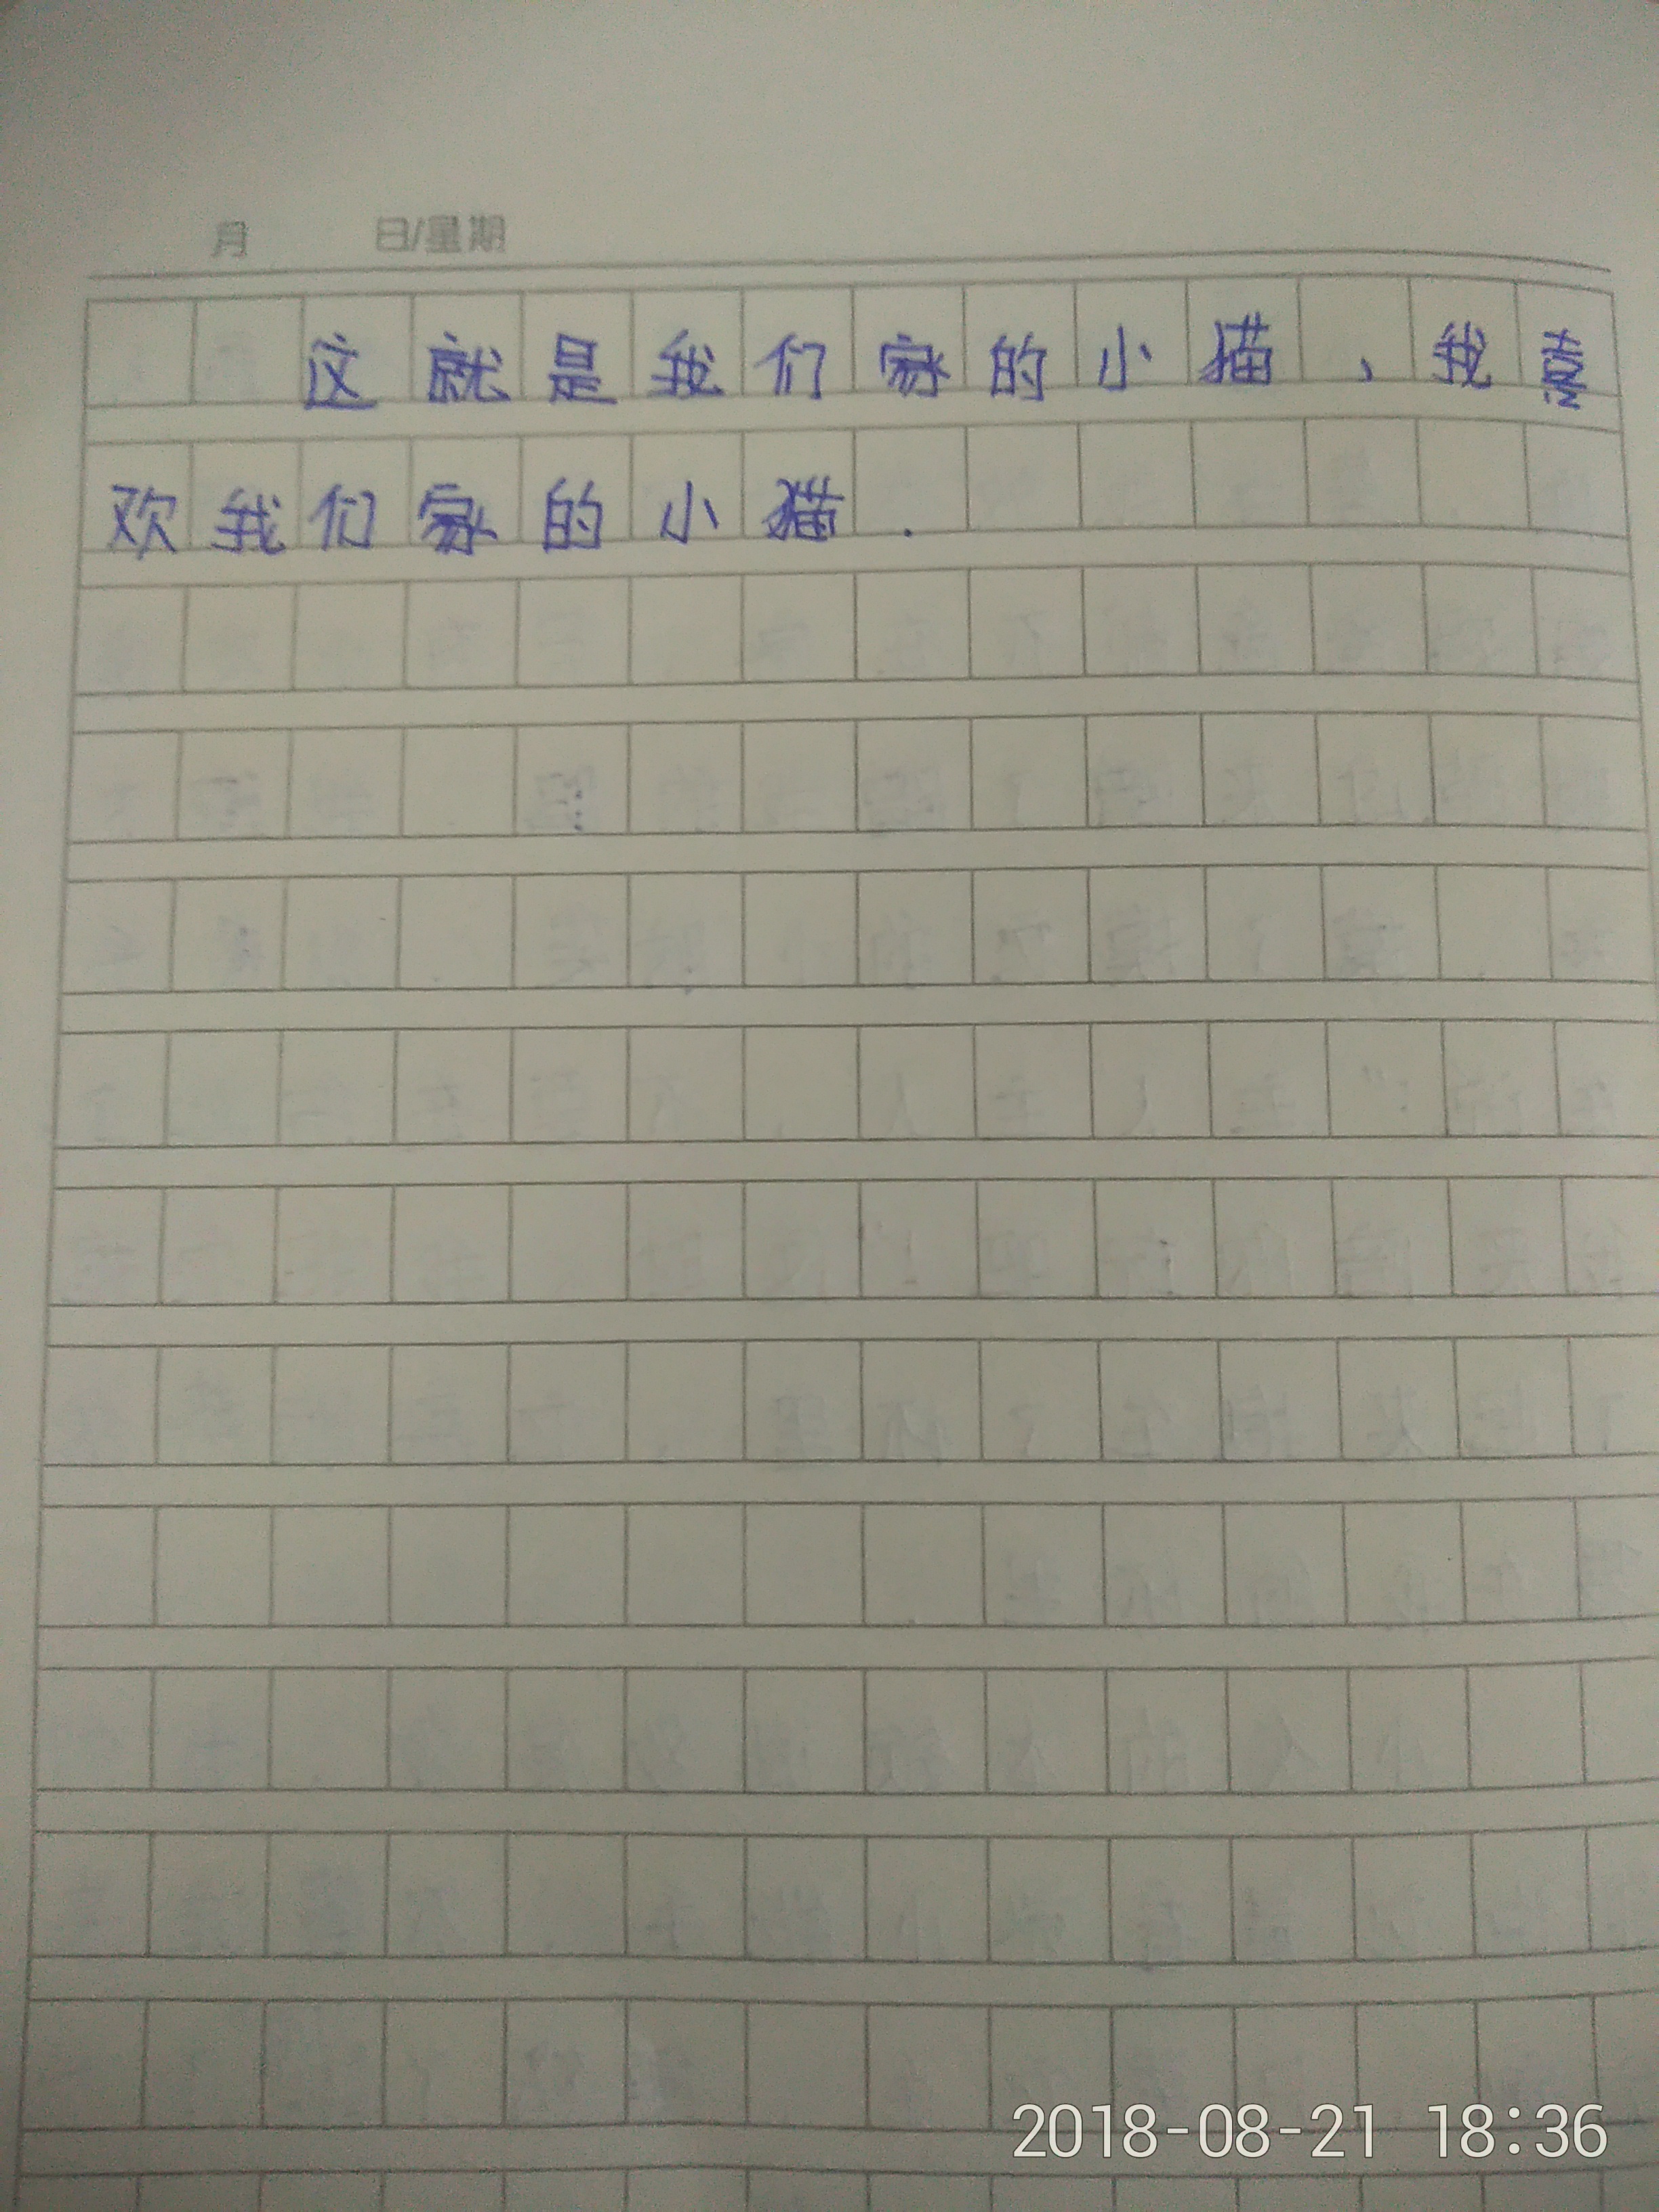 月 日/星期
这就是我们家的小猫，我喜
欢我们家的小猫.
2018-08-21 18:36